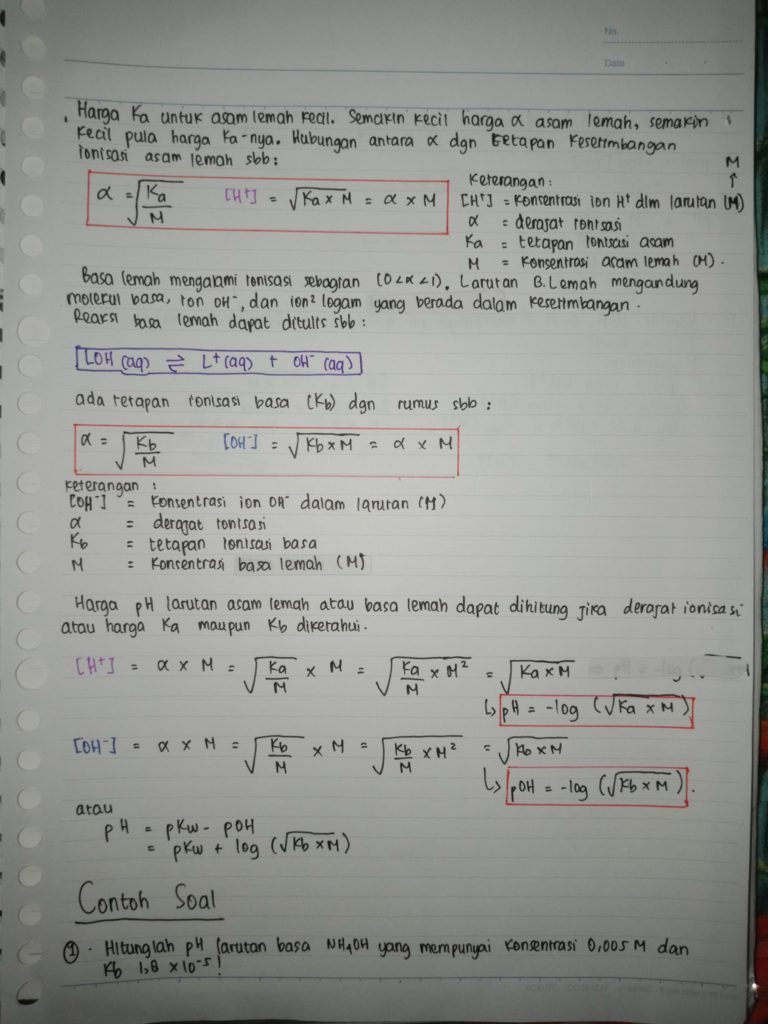 No.
Date
Harga Ka untuk asam lemah kecil. Semakin kecil harga α asam lemah, semakin
kecil pula harga Ka-nya. Hubungan antara α dgn tetapan kesetimbangan
ionisasi asam lemah sbb:
α = √(Ka/M) [H⁺] = √(Ka × M) = α × M
Keterangan:
M
↑
[H⁺] = konsentrasi ion H⁺ dlm larutan (M)
α = derajat ionisasi
Ka = tetapan ionisasi asam
M = konsentrasi asam lemah (M).
Basa lemah mengalami ionisasi sebagian (0<α<1). Larutan B.Lemah mengandung
molekul basa, ion OH⁻, dan ion² logam yang berada dalam kesetimbangan.
Reaksi basa lemah dapat ditulis sbb:
LOH (aq) ⇌ L⁺(aq) + OH⁻ (aq)
ada tetapan ionisasi basa (Kb) dgn rumus sbb:
α = √(Kb/M) [OH⁻] = √(Kb × M) = α × M
keterangan :
[OH⁻] = konsentrasi ion OH⁻ dalam larutan (M)
α = derajat ionisasi
Kb = tetapan ionisasi basa
M = konsentrasi basa lemah (M)
Harga pH larutan asam lemah atau basa lemah dapat dihitung jika derajat ionisasi
atau harga Ka maupun Kb diketahui.
[H⁺] = α × M = √(Ka/M) × M = √(Ka/M × M²) = √(Ka × M)
↳ pH = -log (√(Ka × M))
[OH⁻] = α × M = √(Kb/M) × M = √(Kb/M × M²) = √(Kb × M)
↳ pOH = -log (√(Kb × M)).
atau
pH = pKw - pOH
= pKw + log (√(Kb × M))
Contoh Soal
① . Hitunglah pH larutan basa NH4OH yang mempunyai konsentrasi 0,005 M dan
Kb 1,8 × 10⁻⁵!